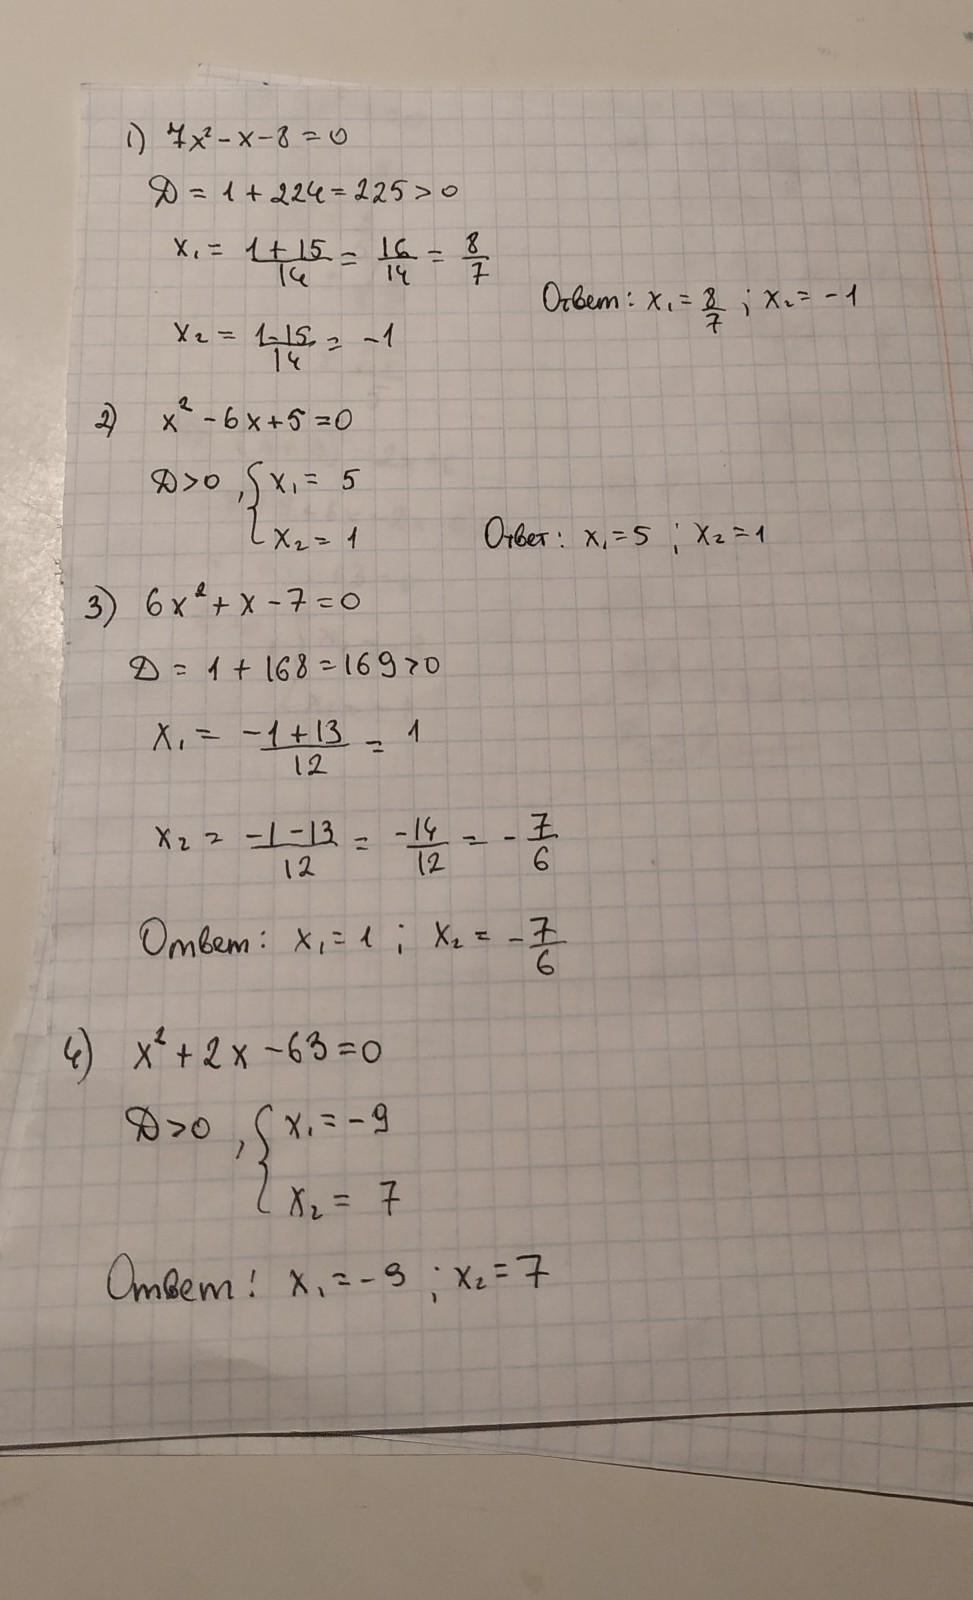 1) 7x² - x - 8 = 0
D = 1 + 224 = 225 > 0
x₁ = (1 + 15)/14 = 16/14 = 8/7
x₂ = (1 - 15)/14 = -1
Ответ: x₁ = 8/7 ; x₂ = -1
2) x² - 6x + 5 = 0
D > 0 , { x₁ = 5
x₂ = 1
Ответ: x₁ = 5 ; x₂ = 1
3) 6x² + x - 7 = 0
D = 1 + 168 = 169 > 0
x₁ = (-1 + 13)/12 = 1
x₂ = (-1 - 13)/12 = -14/12 = -7/6
Ответ: x₁ = 1 ; x₂ = -7/6
4) x² + 2x - 63 = 0
D > 0 , { x₁ = -9
x₂ = 7
Ответ: x₁ = -9 ; x₂ = 7